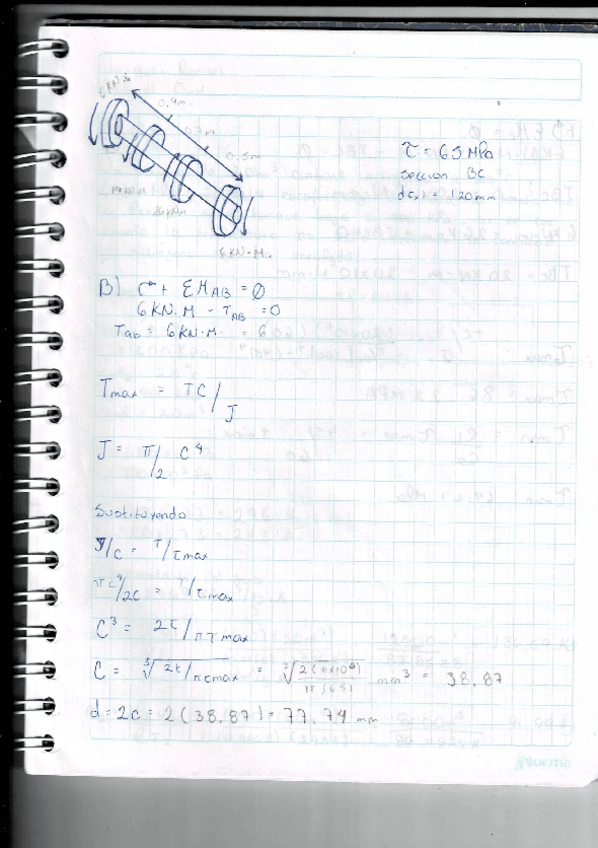 6 KN·m
0.9m
0.3m
0.5m
6 KN·M.
τ = 65 MPa
Seccion BC
dex 120mm
B) + ΣM_AB = 0
6 KN.M - T_AB = 0
Tab = 6 KN·M
Tmax = TC/J
J = π/2 C⁴
Sustituyendo
J/C = T/τmax
πC⁴/2C = T/τmax
C³ = 2t/πτmax
C = ∛2t/πτmax = ∛2(6x10⁶)/π(65) mm³ = 38.87
d = 2c = 2(38.87) = 77.74 mm
Norma